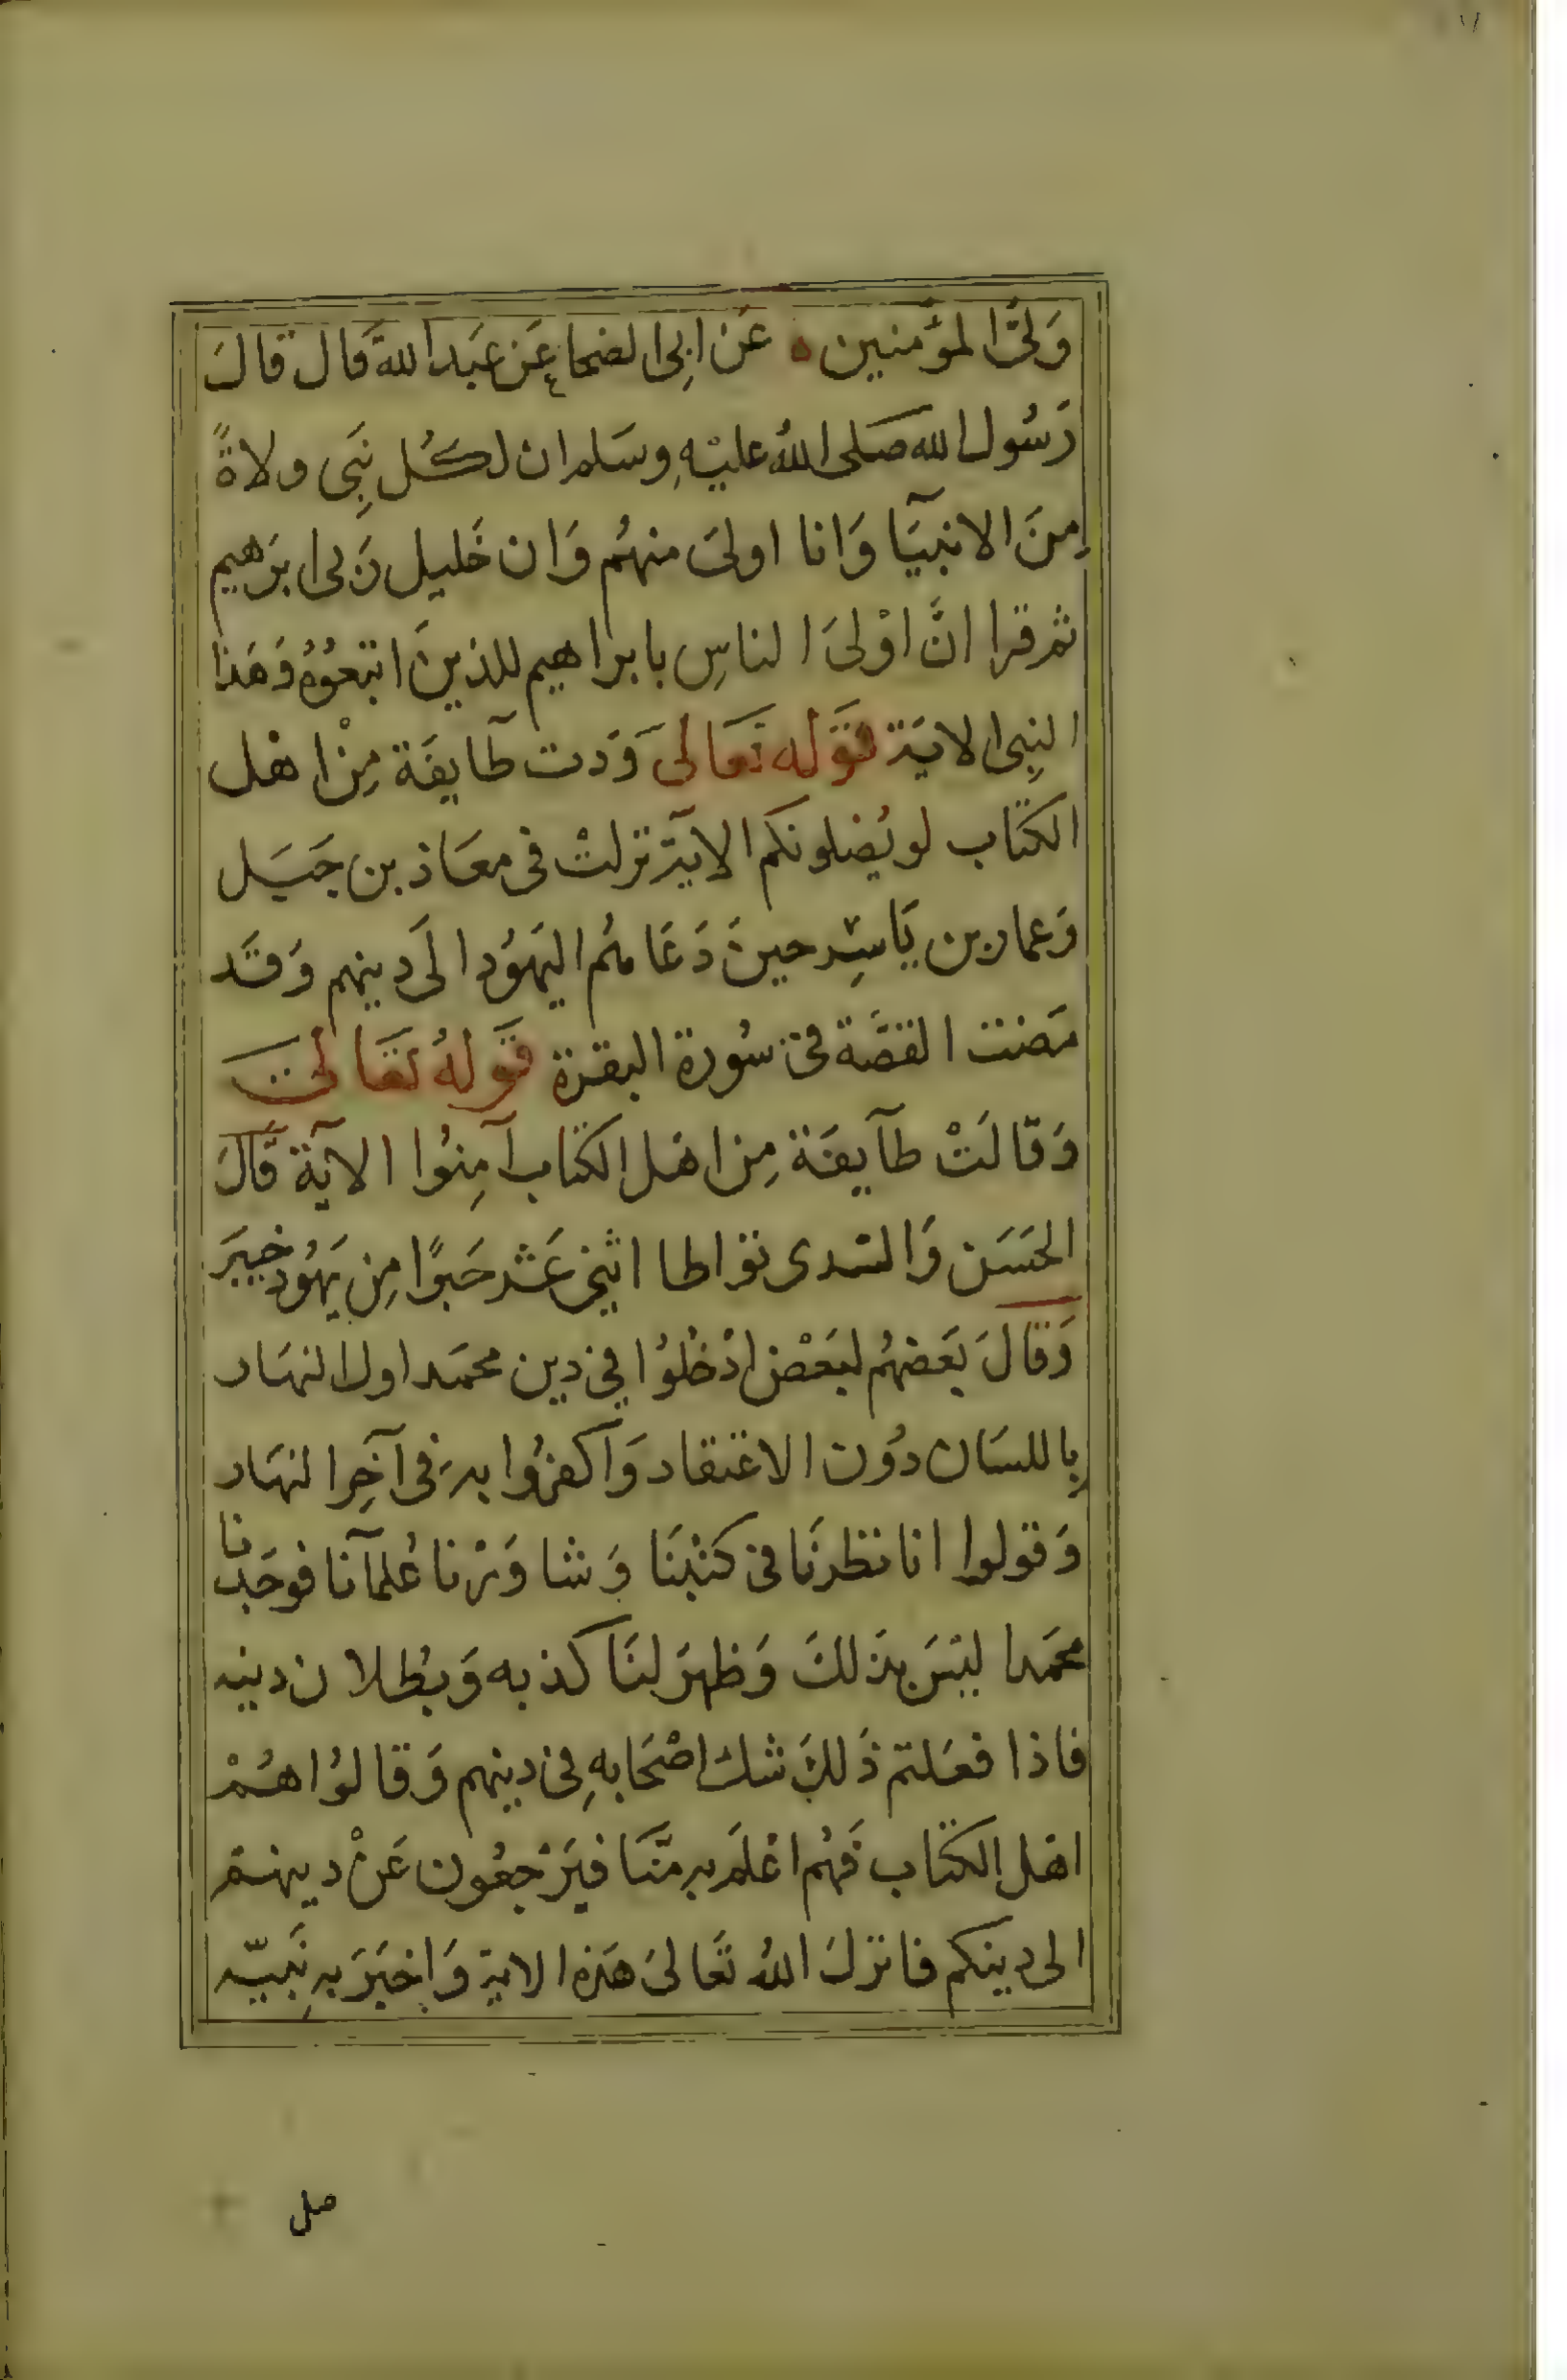 ٧١
وَلىُّ المؤمنين ه عَن ابِى الضحا عَن عبَد الله قال قالَ
رَسُول الله صَلى اللهُ عليْهِ وسَلم ان لكُل نَبِى ولاةً
مِنَ الانبيَآ وَانا اولىَ منهُم وَان خَليل رَبى ابرَهيم
ثم قرا انَّ اوْلىَ الناسِ بابراهيم للذينَ اتبَعُوُه وَهَذا
النبِى الاية قَوله تعَالىَ وَدت طآيفَة مِنْ اهل
الكتاب لو يُضلونكم الآية نزلتْ فى معَاذ بن جَبَل
وَعمار بن يَاسِر حينَ دَعَاهُم اليَهوُد الىَ دينهم وَقَد
مَضت القصَّة فى سُورة البقرة قَولهُ تعَالىَ
وَقالَتْ طآيفَة مِن اهَل الكتاب آمِنُوا الآية قَالَ
الحَسَن وَالسدى تواطا اثنى عَشر حَبرًا مِن يَهُود خيبَر
وَقالَ بَعضهُم لبَعْض ادْخُلوُا فِي دين محمَد اول النهَار
بِاللسَان دوُن الاعتقاد وَاكفرُوا به فى آخِر النهَار
وَقولوا انا نظرنَا فى كتُبنَا وَشا وَرْنا عُلمآنا فوَجَدنا
محَمدا ليْسَ بذَلكَ وَظهرَ لنَا كذبه وَبُطلان دينه
فاذا فعَلتم ذَلكَ شك اصْحَابهِ فى دينهم وَقالوُا هُمْ
اهَل الكتاب فَهُم اعْلَم به منَّا فيَرْجعُون عَنْ دينهم
الى دينكم فانزلَ اللهُ تَعَالىَ هَذه الاية وَاخبَرَ بهِ نَبيّه
صلى